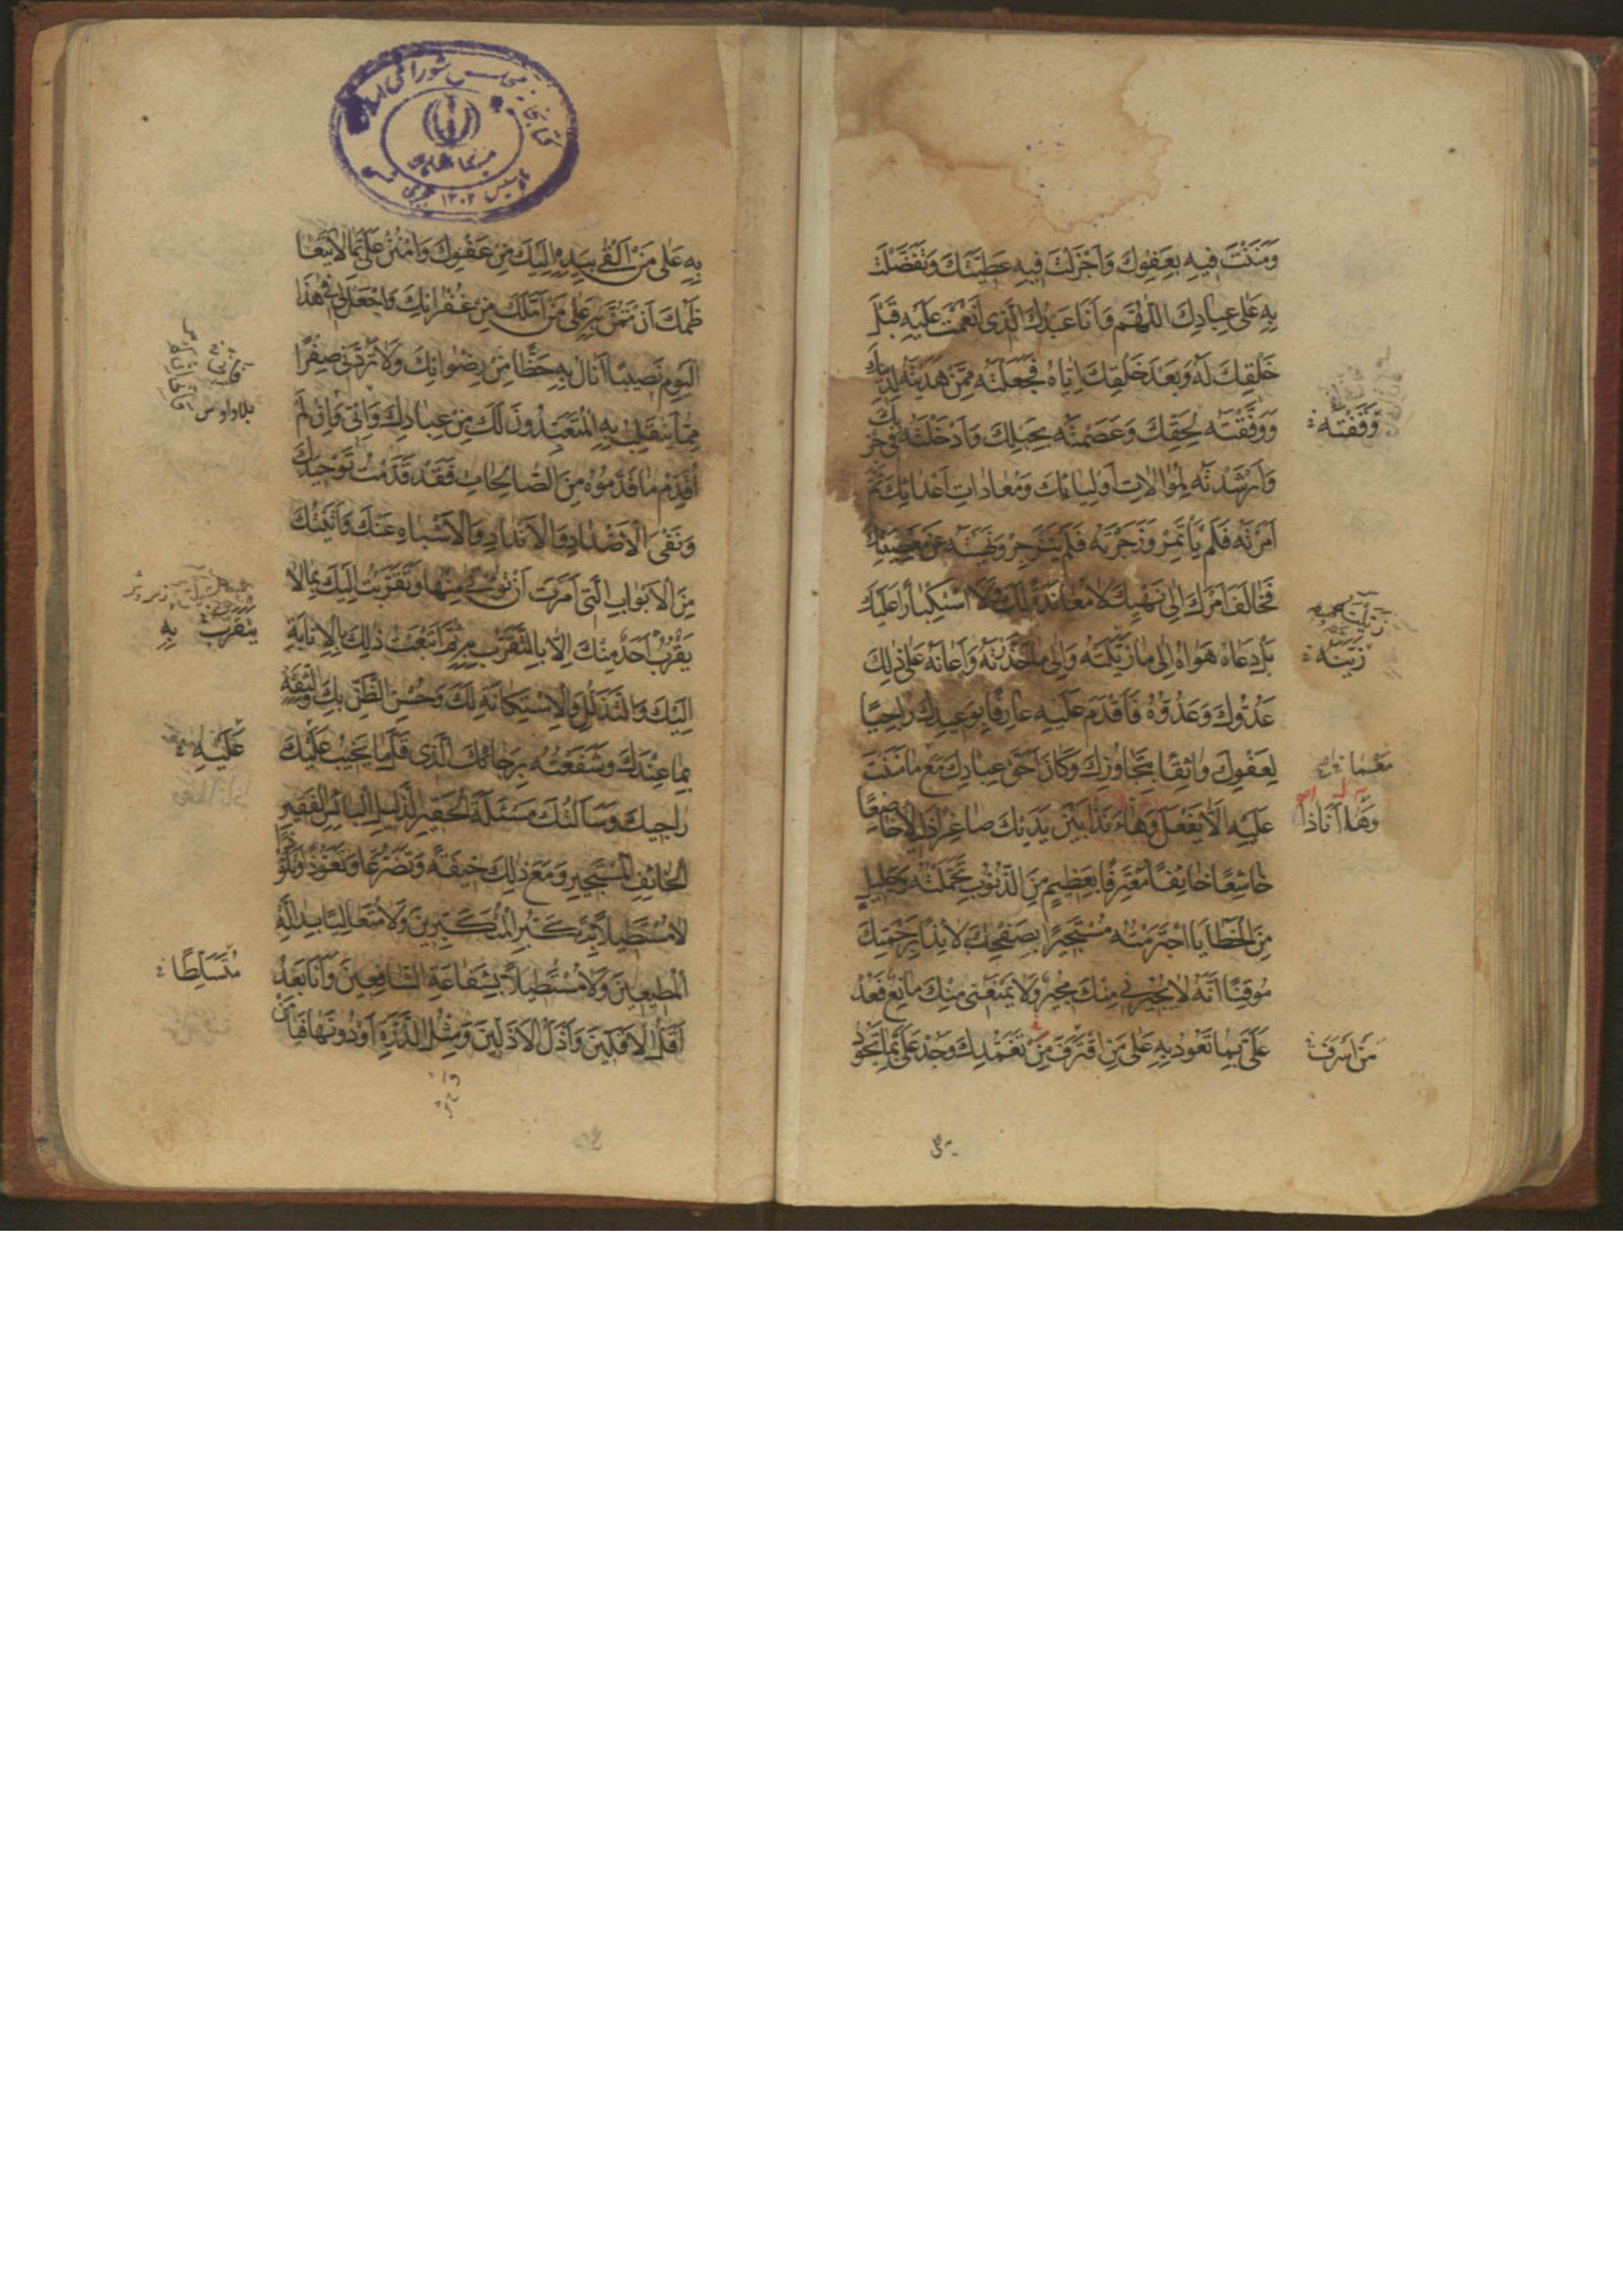 وَمَنَنْتَ فِيهِ بِعَفْوِكَ وَاَجْزَلْتَ فِيهِ عَطِيَّتَكَ وَتَفَضَّلْتَ
بِهِ عَلٰى عِبَادِكَ اَللّٰهُمَّ وَاَنَا عَبْدُكَ الَّذِى اَنْعَمْتَ عَلَيْهِ قَبْلَ
خَلْقِكَ لَهُ وَبَعْدَ خَلْقِكَ اِيَّاهُ فَجَعَلْتَهُ مِمَّنْ هَدَيْتَهُ لِدِينِكَ
وَوَفَّقْتَهُ لِحَقِّكَ وَعَصَمْتَهُ بِحَبْلِكَ وَاَدْخَلْتَهُ فِى حِزْبِكَ
وَقَفْتَهُ
وَاَرْشَدْتَهُ لِمُوَالَاتِ اَوْلِيَائِكَ وَمُعَادَاتِ اَعْدَائِكَ ثُمَّ
اَمَرْتَهُ فَلَمْ يَأْتَمِرْ وَزَجَرْتَهُ فَلَمْ يَنْزَجِرْ وَنَهَيْتَهُ عَنْ مَعْصِيَتِكَ
فَخَالَفَ اَمْرَكَ اِلٰى نَهْيِكَ لَا مُعَانَدَةً لَكَ وَلَا اسْتِكْبَارًا عَلَيْكَ
بَلْ دَعَاهُ هَوَاهُ اِلٰى مَا زَيَّلْتَهُ وَاِلٰى مَا حَذَّرْتَهُ وَاَعَانَهُ عَلٰى ذٰلِكَ
زَيَّنْتَهُ
عَدُوُّكَ وَعَدُوُّهُ فَاَقْدَمَ عَلَيْهِ عَارِفًا بِوَعِيدِكَ رَاجِيًا
لِعَفْوِكَ وَاثِقًا بِتَجَاوُزِكَ وَكَانَ اَحَقَّ عِبَادِكَ مَعَ مَا مَنَنْتَ
مَعَمَا
عَلَيْهِ اَلَّا يَفْعَلَ وَهَا اَنَذَا بَيْنَ يَدَيْكَ صَاغِرًا ذَلِيلًا خَاضِعًا
وَهَا اَنَاذَا
خَاشِعًا خَائِفًا مُعْتَرِفًا بِعَظِيمٍ مِنَ الذُّنُوبِ تَحَمَّلْتُهُ وَجَلِيلٍ
مِنَ الْخَطَايَا اجْتَرَمْتُهُ مُسْتَجِيرًا بِصَفْحِكَ لَائِذًا بِرَحْمَتِكَ
مُوقِنًا اَنَّهُ لَا يُجِيرُنِى مِنْكَ مُجِيرٌ وَلَا يَمْنَعُنِى مِنْكَ مَانِعٌ فَعُدْ
عَلَىَّ بِمَا تَعُودُ بِهِ عَلٰى مَنِ اقْتَرَفَ مِنْ تَغَمُّدِكَ وَجُدْ عَلَىَّ بِمَا تَجُودُ
مَنْ اَسْرَفَ
بِهِ عَلٰى مَنْ اَلْقٰى بِيَدِهِ اِلَيْكَ مِنْ عَفْوِكَ وَامْنُنْ عَلَىَّ بِمَا لَا يَتَعَا
ظَمُكَ اَنْ تَمُنَّ بِهِ عَلٰى مَنْ اَمَّلَكَ مِنْ غُفْرَانِكَ وَاجْعَلْ لِى فِى هٰذَا
الْيَوْمِ نَصِيبًا اَنَالُ بِهِ حَظًّا مِنْ رِضْوَانِكَ وَلَا تَرُدَّنِى صِفْرًا
مِمَّا يَنْقَلِبُ بِهِ الْمُتَعَبِّدُونَ لَكَ مِنْ عِبَادِكَ وَاِنِّى وَاِنْ لَمْ
اُقَدِّمْ مَا قَدَّمُوهُ مِنَ الصَّالِحَاتِ فَقَدْ قَدَّمْتُ تَوْحِيدَكَ
وَنَفْىَ الْاَضْدَادِ وَالْاَنْدَادِ وَالْاَشْبَاهِ عَنْكَ وَاَتَيْتُكَ
مِنَ الْاَبْوَابِ الَّتِى اَمَرْتَ اَنْ تُؤْتٰى مِنْهَا وَتَقَرَّبْتُ اِلَيْكَ بِمَا لَا
يَقْرُبُ اَحَدٌ مِنْكَ اِلَّا بِالتَّقَرُّبِ بِهِ ثُمَّ اَتْبَعْتُ ذٰلِكَ بِالْاِنَابَةِ
يَتَقَرَّبُ بِهِ
اِلَيْكَ وَالتَّذَلُّلِ وَالْاِسْتِكَانَةِ لَكَ وَحُسْنِ الظَّنِّ بِكَ وَالثِّقَةِ
بِمَا عِنْدَكَ وَشَفَعْتُهُ بِرَجَائِكَ الَّذِى قَلَّمَا يَخِيبُ عَلَيْكَ
عَلَيْهِ
رَاجِيكَ وَسَاَلْتُكَ مَسْئَلَةَ الْحَقِيرِ الذَّلِيلِ الْبَائِسِ الْفَقِيرِ
الْخَائِفِ الْمُسْتَجِيرِ وَمَعَ ذٰلِكَ خِيفَةً وَتَضَرُّعًا وَتَعَوُّذًا وَتَلَوُّذًا
لَا مُسْتَطِيلًا بِتَكَبُّرِ الْمُتَكَبِّرِينَ وَلَا مُتَعَالِيًا بِدَالَّةِ
الْمُطِيعِينَ وَلَا مُسْتَطِيلًا بِشَفَاعَةِ الشَّافِعِينَ وَاَنَا بَعْدُ
مُتَسَلِّطًا
اَقَلُّ الْاَقَلِّينَ وَاَذَلُّ الْاَذَلِّينَ وَمِثْلُ الذَّرَّةِ اَوْ دُونَهَا فَيَا مَنْ